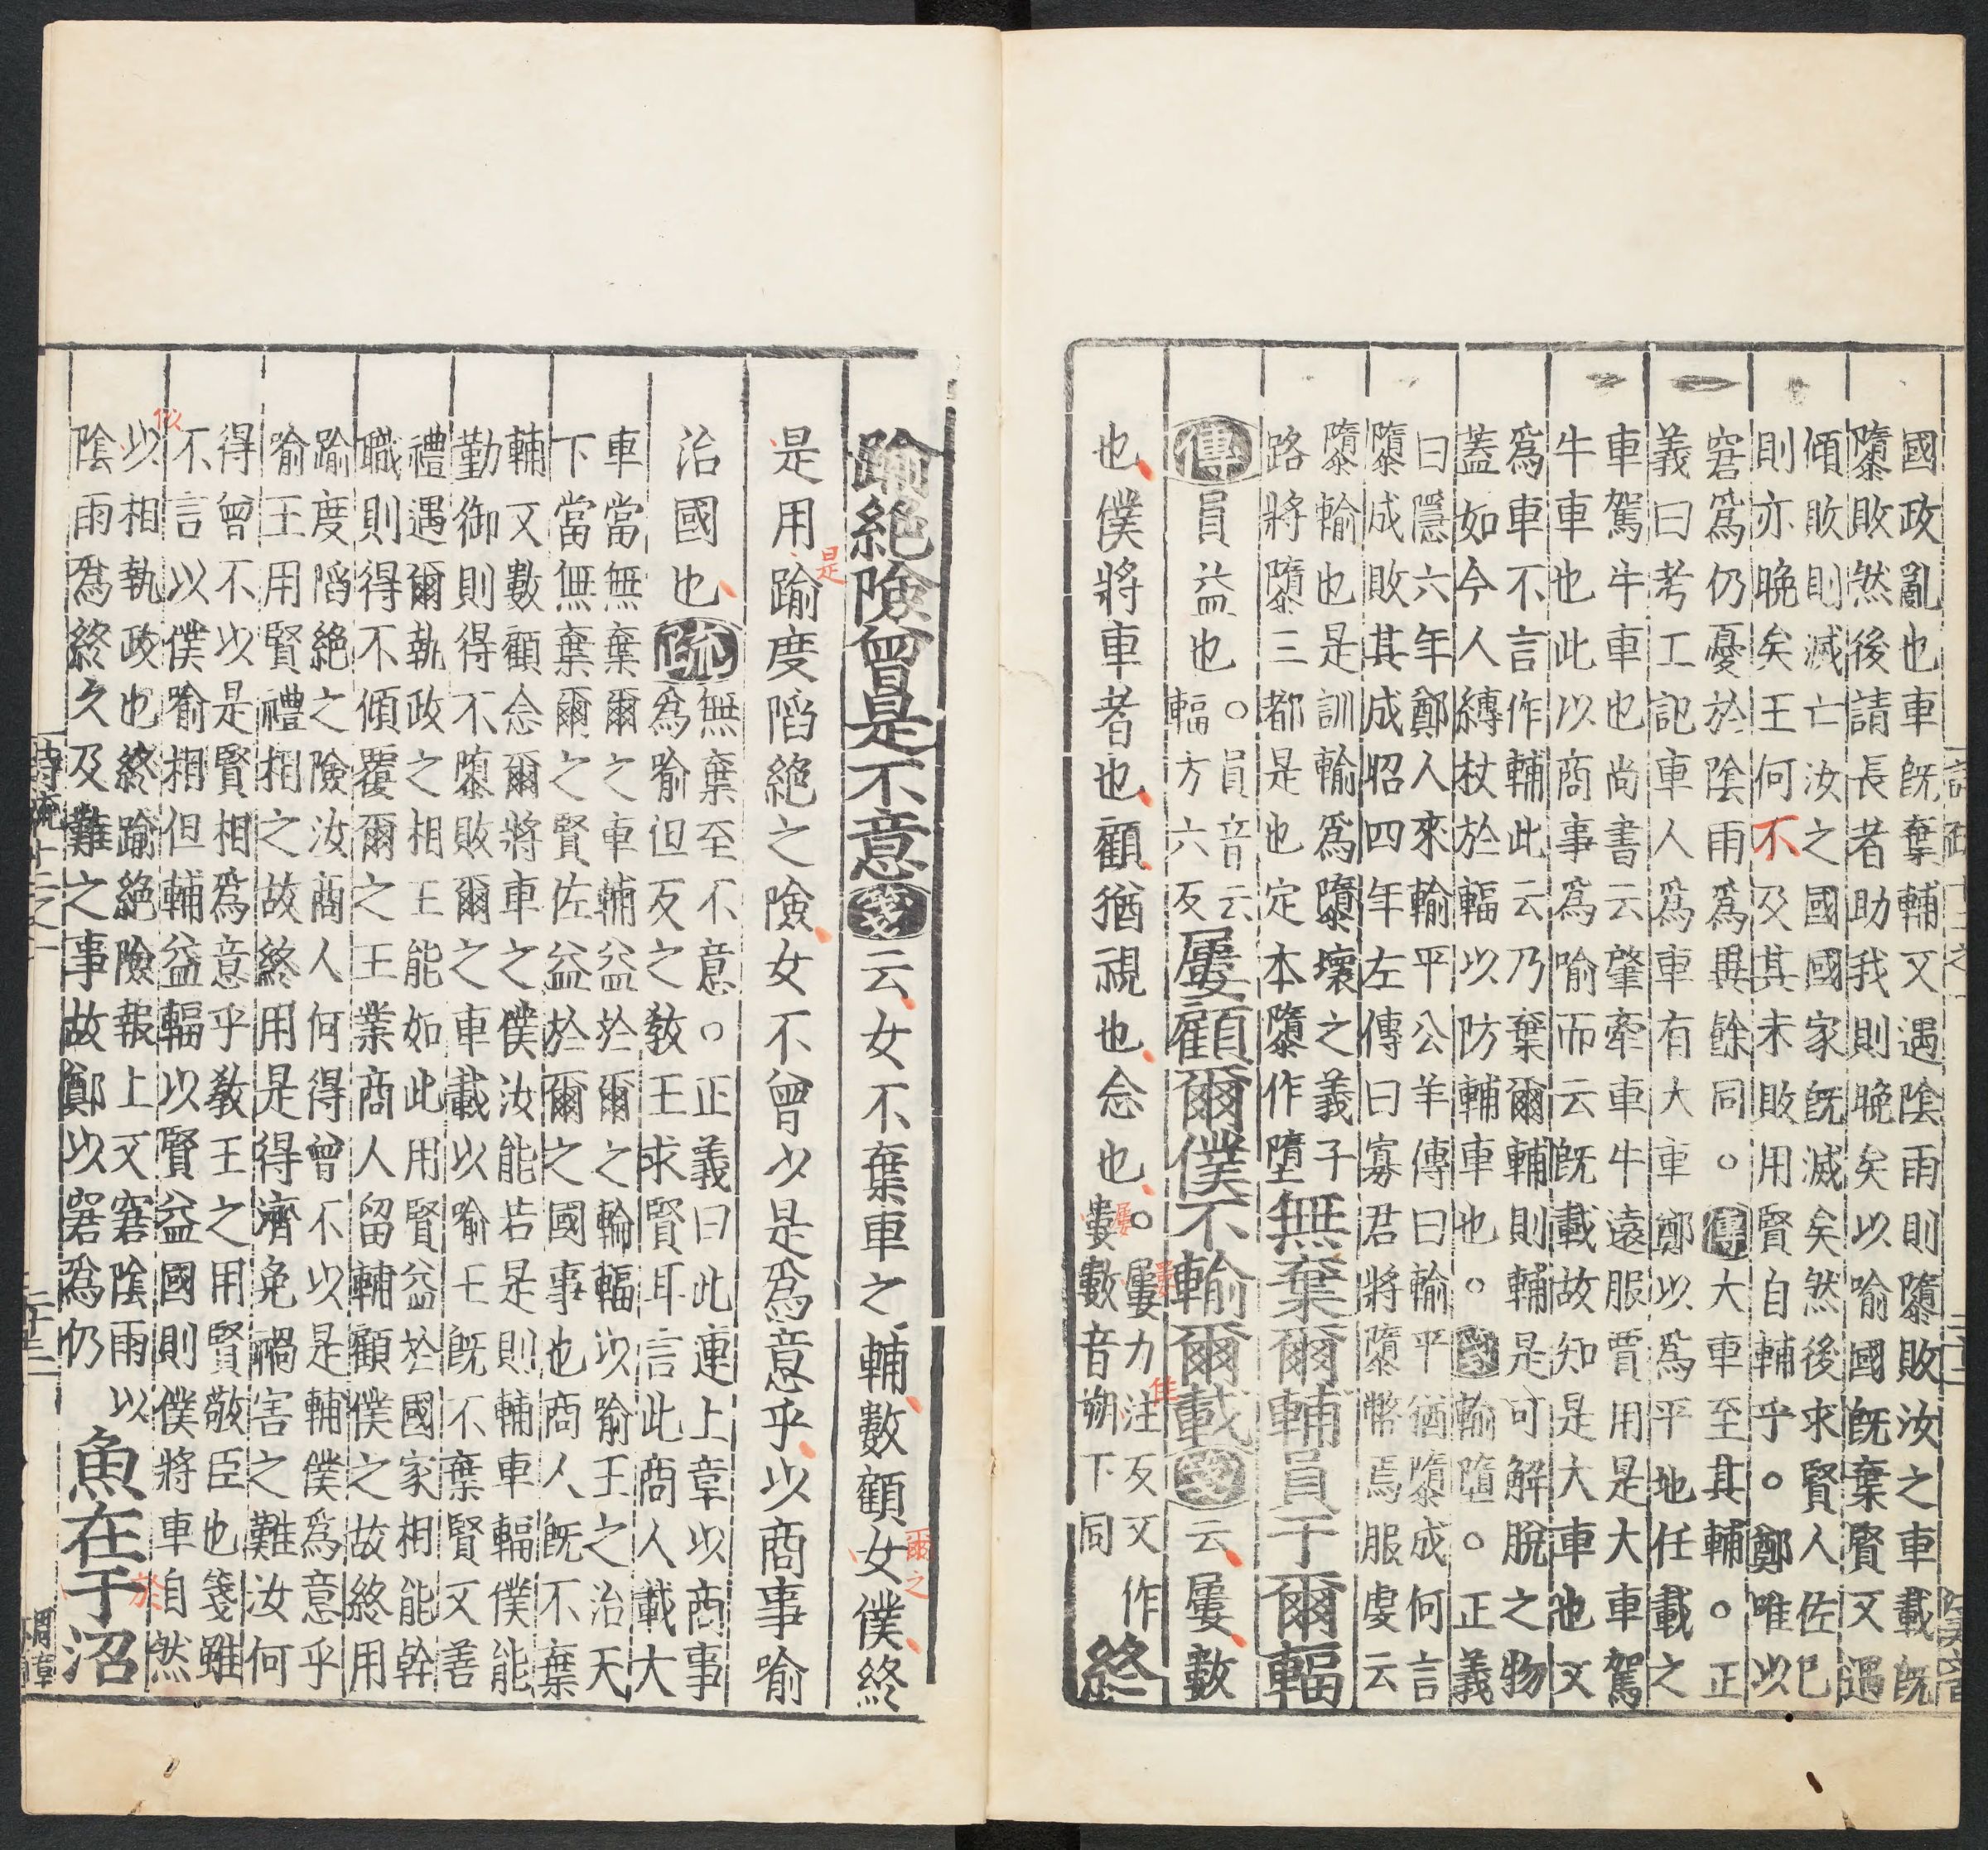 國政亂也車既棄輔又遇陰雨則隳敗汝之車載既
隳敗然後請長者助我則晚矣以喻國既棄賢又遇
傾敗則滅亡汝之國國家既滅矣然後求賢人佐巳
則亦晚矣王何不及其未敗用賢自輔乎。鄭唯以
窘爲仍憂於陰雨爲異餘同。傳大車至其輔。正
義曰考工記車人爲車有大車鄭以爲平地任載之
車駕牛車也尚書云肇牽車牛遠服賈用是大車駕
牛車也此以商事爲喻而云既載故知是大車也又
爲車不言作輔此云乃棄爾輔則輔是可解脫之物
蓋如今人縛杖於輻以防輔車也。箋輸墮。正義
曰隱六年鄭人來輸平公羊傳曰輸平猶隳成何言
隳成敗其成昭四年左傳曰寡君將隳幣焉服虔云
隳輸也是訓輸爲隳壞之義子
路將隳三都是也定本隳作墮
無棄爾輔員于爾輻
傳員益也。員音云
輻方六反
屢顧爾僕不輸爾載箋云屢數
也僕將車者也顧猶視也念也。屢力注反又作
婁數音朔下同
終
踰絶險曾是不意箋云女不棄車之輔數顧女僕終
是用踰度陷絶之險女不曾以是爲意乎以商事喻
治國也疏
無棄至不意。正義曰此連上章以商事
爲喻但反之教王求賢耳言此商人載大
車當無棄爾之車輔益於爾之輪輻以喻王之治天
下當無棄爾之賢佐益於爾之國事也商人既不棄
輔又數顧念爾將車之僕汝能若是則輔車輻僕能
勤御則得不隳敗爾之車載以喻王既不棄賢又善
禮遇爾執政之相王能如此用賢益於國家相能幹
職則得不傾覆爾之王業商人留輔顧僕之故終用
踰度陷絶之險汝商人何得曾不以是輔僕爲意乎
喻王用賢禮相之故終用是得濟免禍害之難汝何
得曾不以是賢相爲意乎教王之用賢敬臣也箋雖
不言以僕喻相但輔益輻以賢益國則僕將車自然
以相執政也終踰絶險報上又窘陰雨以
陰雨爲終久及難之事故鄭以窘爲仍
魚在于沼